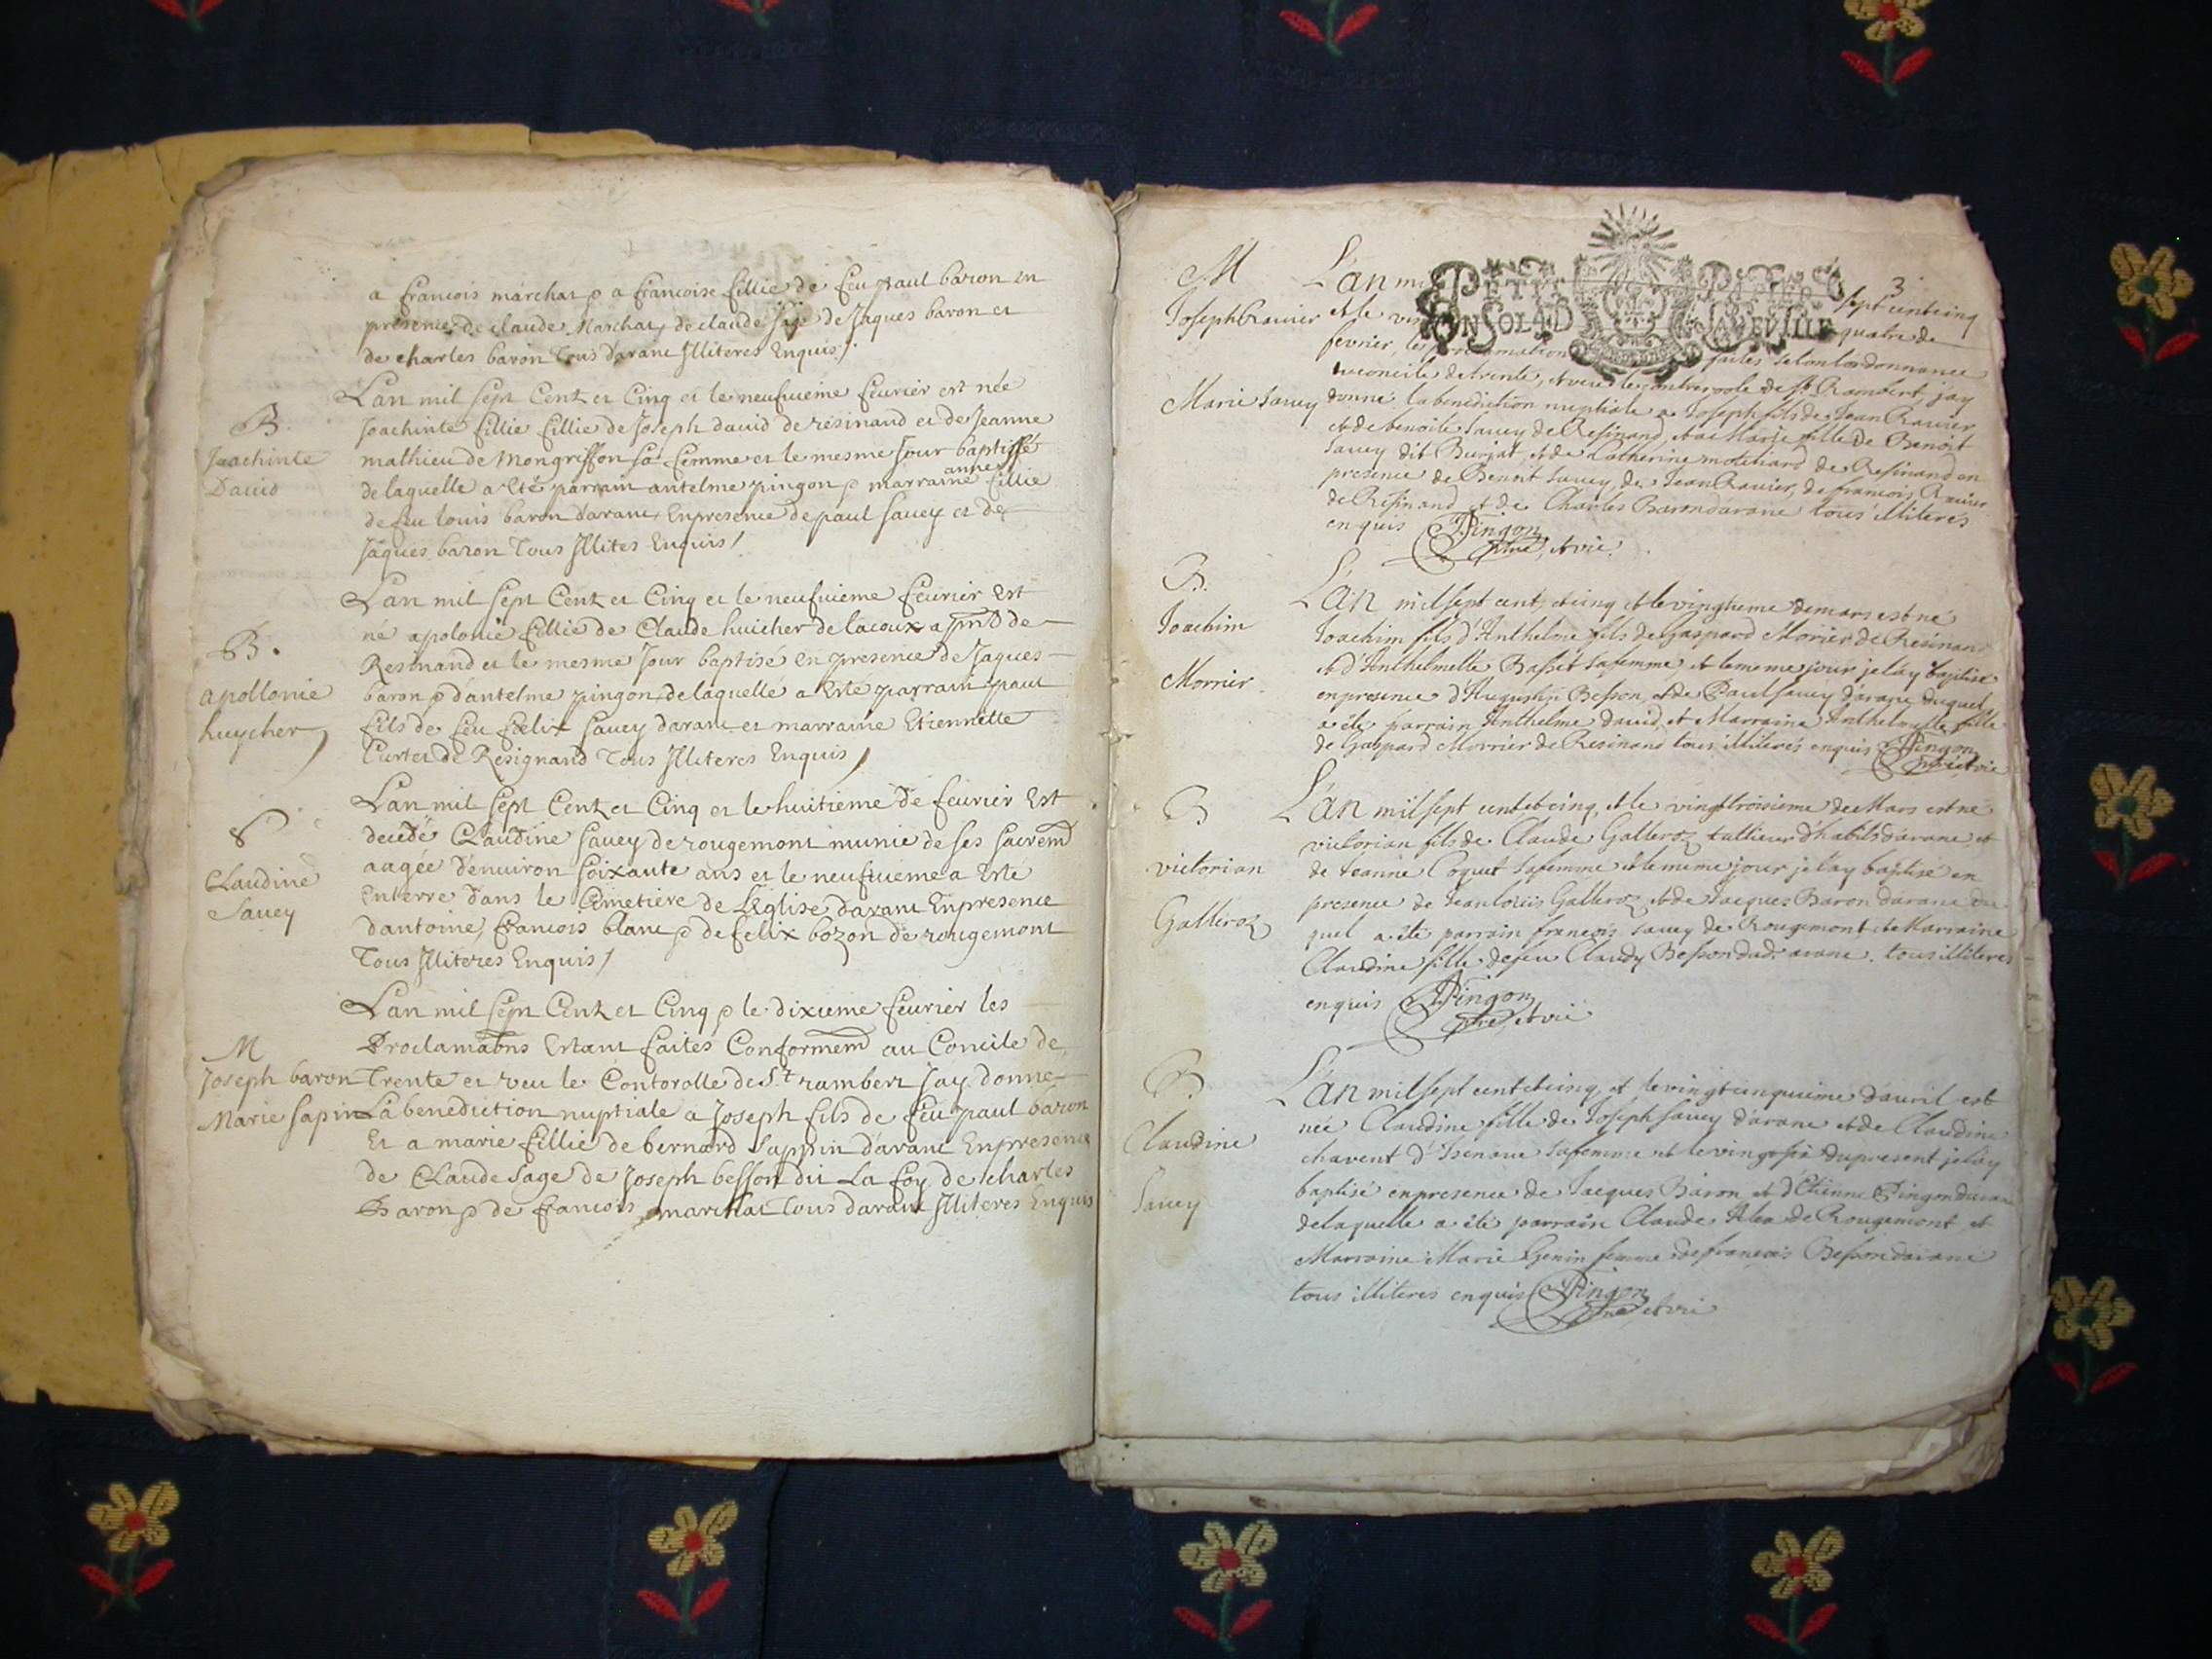 a francois marchat p a francoise fillie de feu paul baron en
presence de claude Marchat, de claude fils de Jaques baron et
de charles baron Tous darane Jlliteres Enquis /.
Lan mil sept Cent et Cinq et le neufuieme feurier est née
B. Joachinte fillie fillie de Joseph dauid de résinand et de Jeanne
Joachinte mathieu de Mongriffon sa femme et le mesme Jour baptissé
Dauid de laquelle a été parrain antelme pingon p marraine anne fillie
de feu louis baron darane, Enpresence de paul sauey et de
Jaques baron Tous Jllites Enquis /
Lan mil sept Cent et Cinq et le neufuieme feurier est
né apolonie fillie de Claude huicher de lacoux a pnt de
B. Resinand et le mesme Jour baptisé en presence de Jaques
apollonie baron p dantelme pingon, de laquelle a Esté parrain paul
huycher fils de feu foelix sauey darane et marraine Etiennette
Curtet de Résignand Tous Jlliteres Enquis /
Lan mil sept Cent et Cinq et le huitieme de feurier Est
decedé Claudine sauey de rougemont munie de ses sacrem
Claudine aagée d'enuiron soixante ans et le neufuieme a Esté
Sauey Enterre dans le Cimetiere de L'Eglise darane Enpresence
dantoine, francois blanc p de felix bozon de rougemont
Tous Jlliteres Enquis /
Lan mil sept Cent et Cinq p le dixieme feurier les
M Proclamaõns Estant faites Conformem au Concile de
Joseph baron Trente et veu le Contorolle de St rambert Jay donne
Marie sapin La benediction nuptiale a Joseph fils de feu paul baron
Et a marie fillie de bernard Sappin darane Enpresence
de Claude sage de Joseph besson dit La foy de charles
Baron p de francois marchat Tous darane Jlliteres Enquis
3
M L'an mil sept cent cinq
PETIT PAPIER
CONSOLAD SAVEVILLE
Joseph Rauier et le quatre de
feurier, les proclamation faites selon lordonnance
du concile de trente, et veu le controole de St Rambert, jay
Marie Sauey donné la benediction nuptiale a Joseph fils de Jean Rauier
et de benoite Sauey de Resinand, et a Marie fille de Benoit
Sauey dit Burjat, et de Catherine de Resinand en
presence de Benoit Sauey, de Jean Rauier, de francois Rauier
de Resinand et de Charles Baron darane tous illiterés
enquis Pingon
ptre, et vic.
B. L'an mil sept cent, et cinq et le vingtieme de mars est né
Joachim Joachim fils d'Anthelme fils de Gaspard Morrier de Resinand
Morrier et d'Anthelmette Basset sa femme, et le meme jour je lay baptisé
en presence d'Augustin Besson, et de Paul sauey darane duquel
a été parrain Anthelme dauid, et Marraine Anthelmette fille
de Gaspard Morrier de Resinand tous illiterés enquis Pingon
ptre et vic
B L'an mil sept cent et cinq, et le vingt troisieme de Mars est né
victorian victorian fils de Claude Galleroz tallieur d'habits darane et
Galleroz de Jeanne Coquet sa femme et le meme jour je lay baptisé en
presence de Jean louis Galleroz et de Jacques Baron darane du
quel a été parrain francois Sauey de Rougemont et Marraine
Claudine fille de feu Claudy Besson dud. arane. tous illiteres
enquis Pingon
ptre, et vic
B. L'an mil sept cent et cinq, et le vingt cinquieme dauril est
Claudine née Claudine fille de Joseph Sauey darane et de Claudine
Sauey chavent d'Isenaue sa femme et le vingt six du present je lay
baptisé en presence de Jacques Baron, et d'Etienne Pingon darane
de laquelle a été parrain Claude de Rougemont et
Marraine Marie Genin femme de francois Besson darane
tous illiteres enquis Pingon
ptre et vic